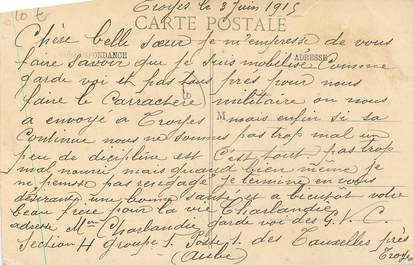 Troyes le 3 juin 1915
CARTE POSTALE
Chère belle sœur je m'empresse de vous
faire savoir que je suis mobilisé comme
CORRESPONDANCE
ADRESSE
garde voi et pas tous près pour nous
faire le carractère militaire on nous
a envoye a Troyes mais enfin si sa
continue nous ne sommes pas trop mal un
peu de dicipline est c'est tout pas trop
mal nourie mais quand bien même je
ne pense pas je termine en vous
désirant une bonne santé et a bientôt votre
beau frere pour la vie Charlandie
adresse Mr Charlandie garde voi des G. V. C.
Section H groupe 1. Poste 1. des Tauxelles près
(Aube) Troyes